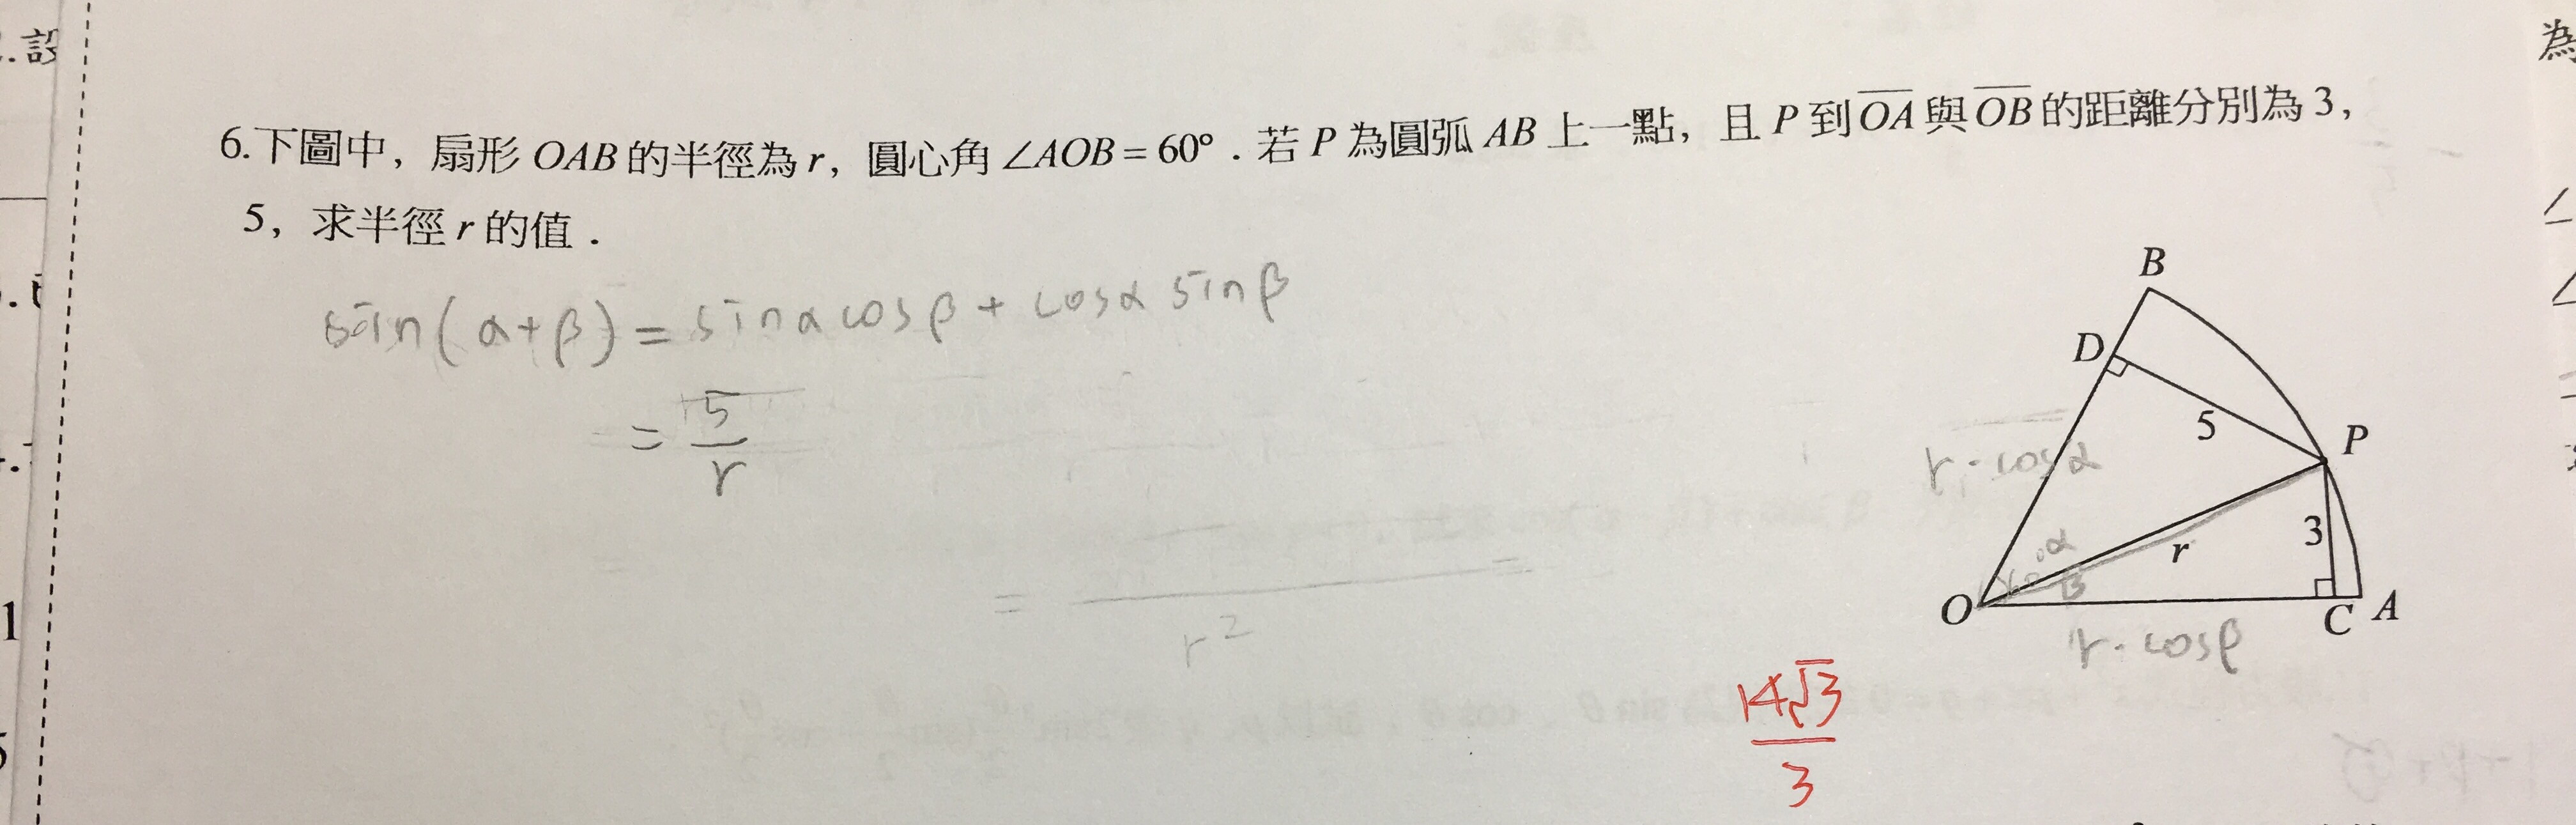 6.下圖中，扇形 OAB 的半徑為 r，圓心角 ∠AOB = 60°．若 P 為圓弧 AB 上一點，且 P 到 OA 與 OB 的距離分別為 3，
5，求半徑 r 的值．
sin(α+β) = sinα cosβ + cosα sinβ
= 5/r
= r²
B
D
5
P
r·cosα
3
α
r
β
O
C A
r·cosβ
14√3/3
為
1